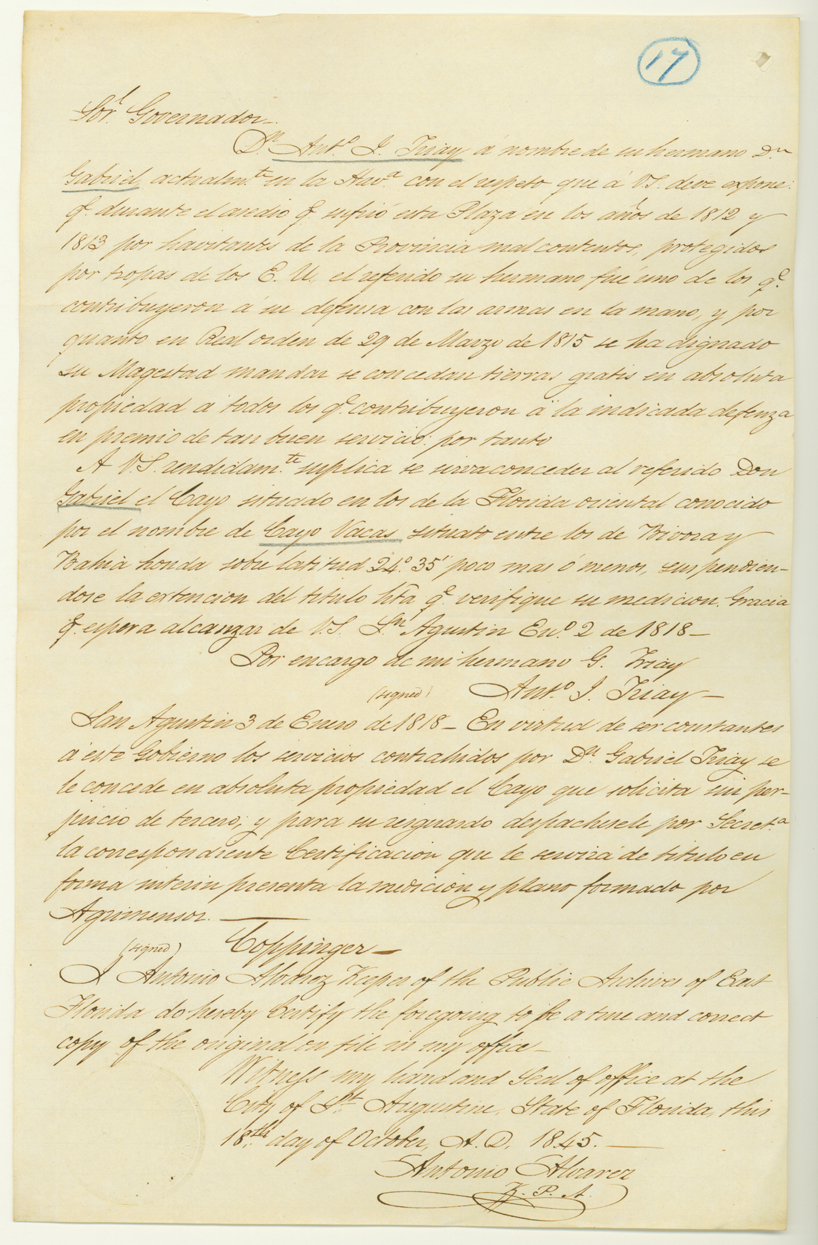 17
Sor. Governador.
Dn. Anto. J. Triay á nombre de su hermano Dn
Gabriel, actualmte. en la Hava. con el respeto que á V.S. deve expone:
q.e durante el asedio q.e sufrió esta Plaza en los años de 1812 y
1813 por havitantes de la Provincia mal contentos, protegidos
por tropas de los E. U. el referido su hermano fue uno de los q.e
contribuyeron á su defensa con las armas en la mano, y por
quanto en Real orden de 29 de Marzo de 1815 se ha dignado
su Magestad mandar se concedan tierras gratis en absoluta
propiedad á todos los q.e contribuyeron á la indicada defenza
en premio de tan buen servicio: por tanto
A V.S. rendidamte. suplica se sirva conceder al referido Don
Gabriel el Cayo situado en los de la Florida oriental conocido
por el nombre de Cayo Vacas situato entre los de Bivora y
Bahia honda sobre latitud 24° 35' poco mas ó menos, suspendien-
dose la extencion del titulo hta. q.e verifique su medicion. Gracia
q.e espera alcanzar de V.S. Sn. Agustin En.o 2 de 1818—
Por encargo de mi hermano G. Triay
(signed) Anto. J. Triay—
San Agustin 3 de Enero de 1818— En virtud de ser constantes
á este Gobierno los servicios contrahidos por Dn. Gabriel Triay se
le concede en absoluta propiedad el Cayo que solicita sin per-
juicio de tercero; y para su resguardo despachesele por Secreta.
la correspondiente Certificacion que le servirá de titulo en
forma interin presenta la medicion y plano formado por
Agrimensor.
(signed) Coppinger—
I Antonio Alvarez Keeper of the Public Archives of East
Florida do hereby Certify the foregoing to be a true and correct
copy of the original on file in my office—
Witness my hand and Seal of office at the
City of St. Augustine, State of Florida, this
18th. day of October, A.D. 1845.—
Antonio Alvarez
K. P. A.